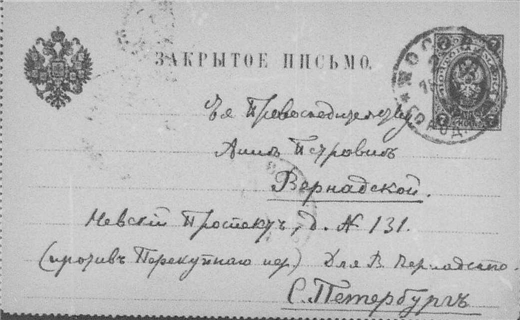 ЗАКРЫТОЕ ПИСЬМО.
МОСКВА
7
7
Ея Превосходительству
Аннѣ Петровнѣ
Вернадской.
Невскій Проспектъ, д. № 131.
(противъ Перекупнаго пер.) Для В. Вернадскаго.
С. Петербургъ